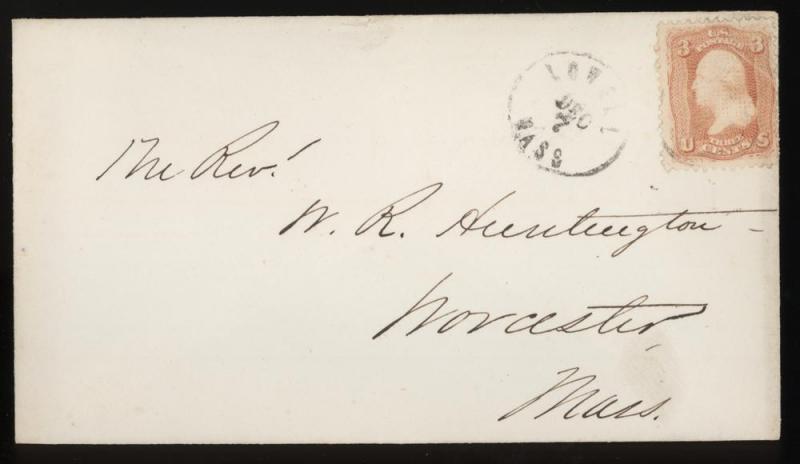 U.S.
POSTAGE
3 3
THREE
U CENTS S
LOWELL
DEC
7
MASS
The Rev.!
W. R. Huntington
Worcester,
Mass.